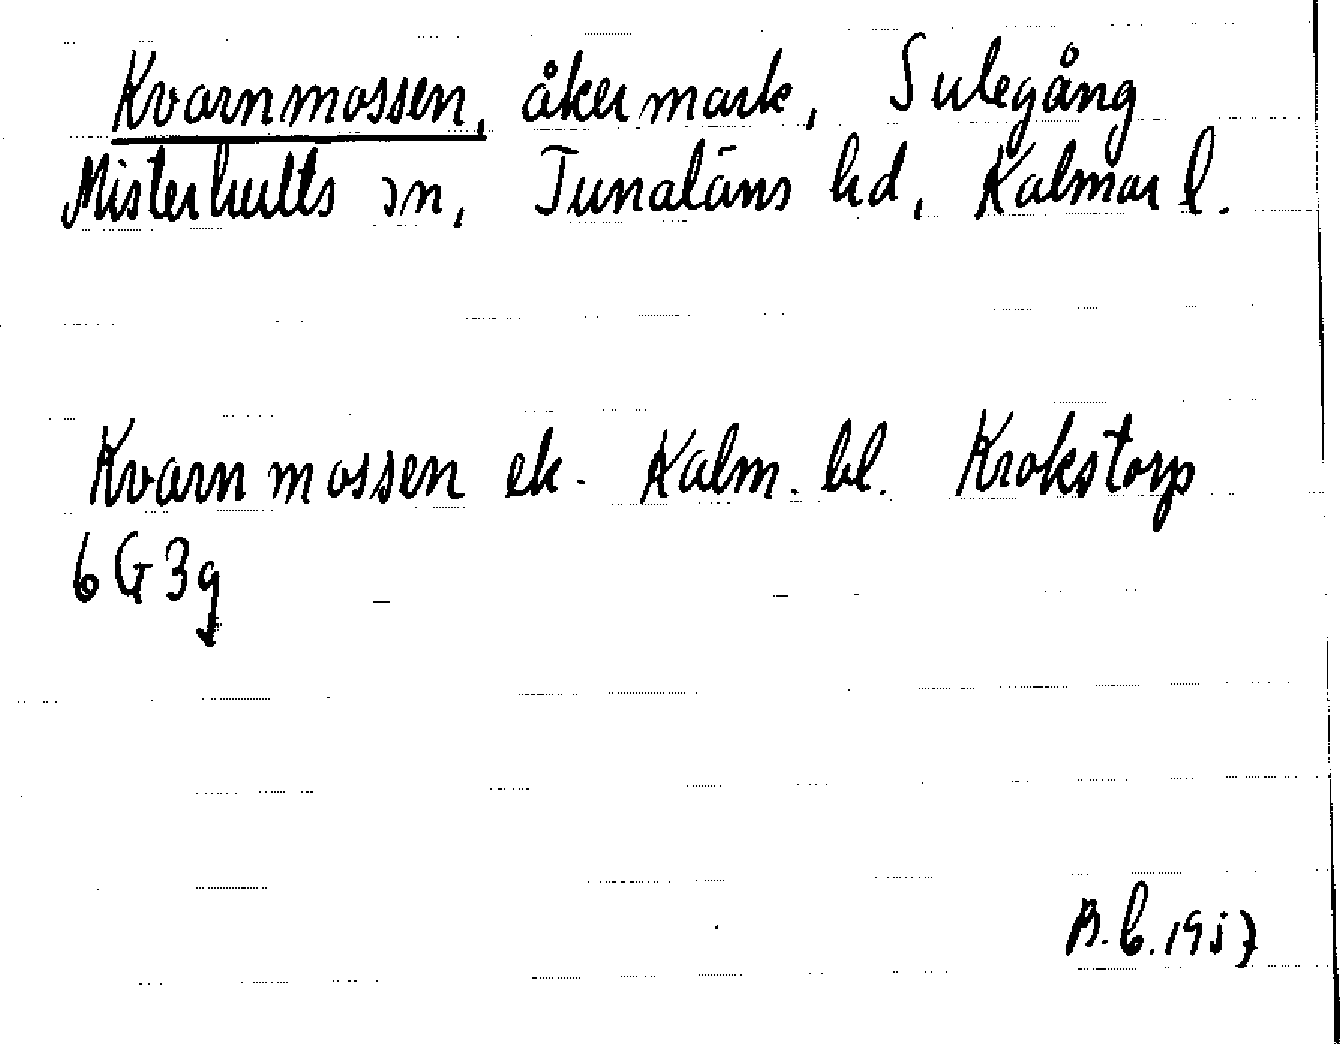 Kvarnmossen, åkermark, Sulegång
Misterhults sn, Tunaläns hd, Kalmar l.
Kvarnmossen ek. Kalm. bl. Krokstorp
6G3g
B.L.1957